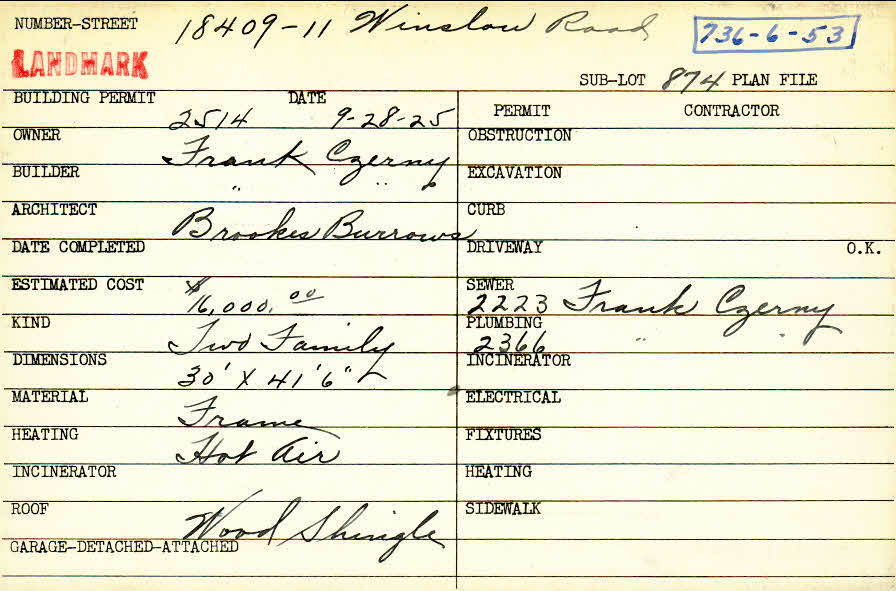 NUMBER-STREET 18409-11 Winslow Road 736-6-53
LANDMARK
SUB-LOT 874 PLAN FILE
BUILDING PERMIT 2514 DATE 9-28-25
PERMIT CONTRACTOR
OWNER Frank Czerny
OBSTRUCTION
BUILDER " " "
EXCAVATION
ARCHITECT Brookes Burrows
CURB
DATE COMPLETED
DRIVEWAY O.K.
ESTIMATED COST $16,000.00
SEWER 2223 Frank Czerny
KIND Two Family
PLUMBING 2366 " "
DIMENSIONS 30' X 41'6"
INCINERATOR
MATERIAL Frame
ELECTRICAL
HEATING Hot Air
FIXTURES
INCINERATOR
HEATING
ROOF Wood Shingle
SIDEWALK
GARAGE-DETACHED-ATTACHED